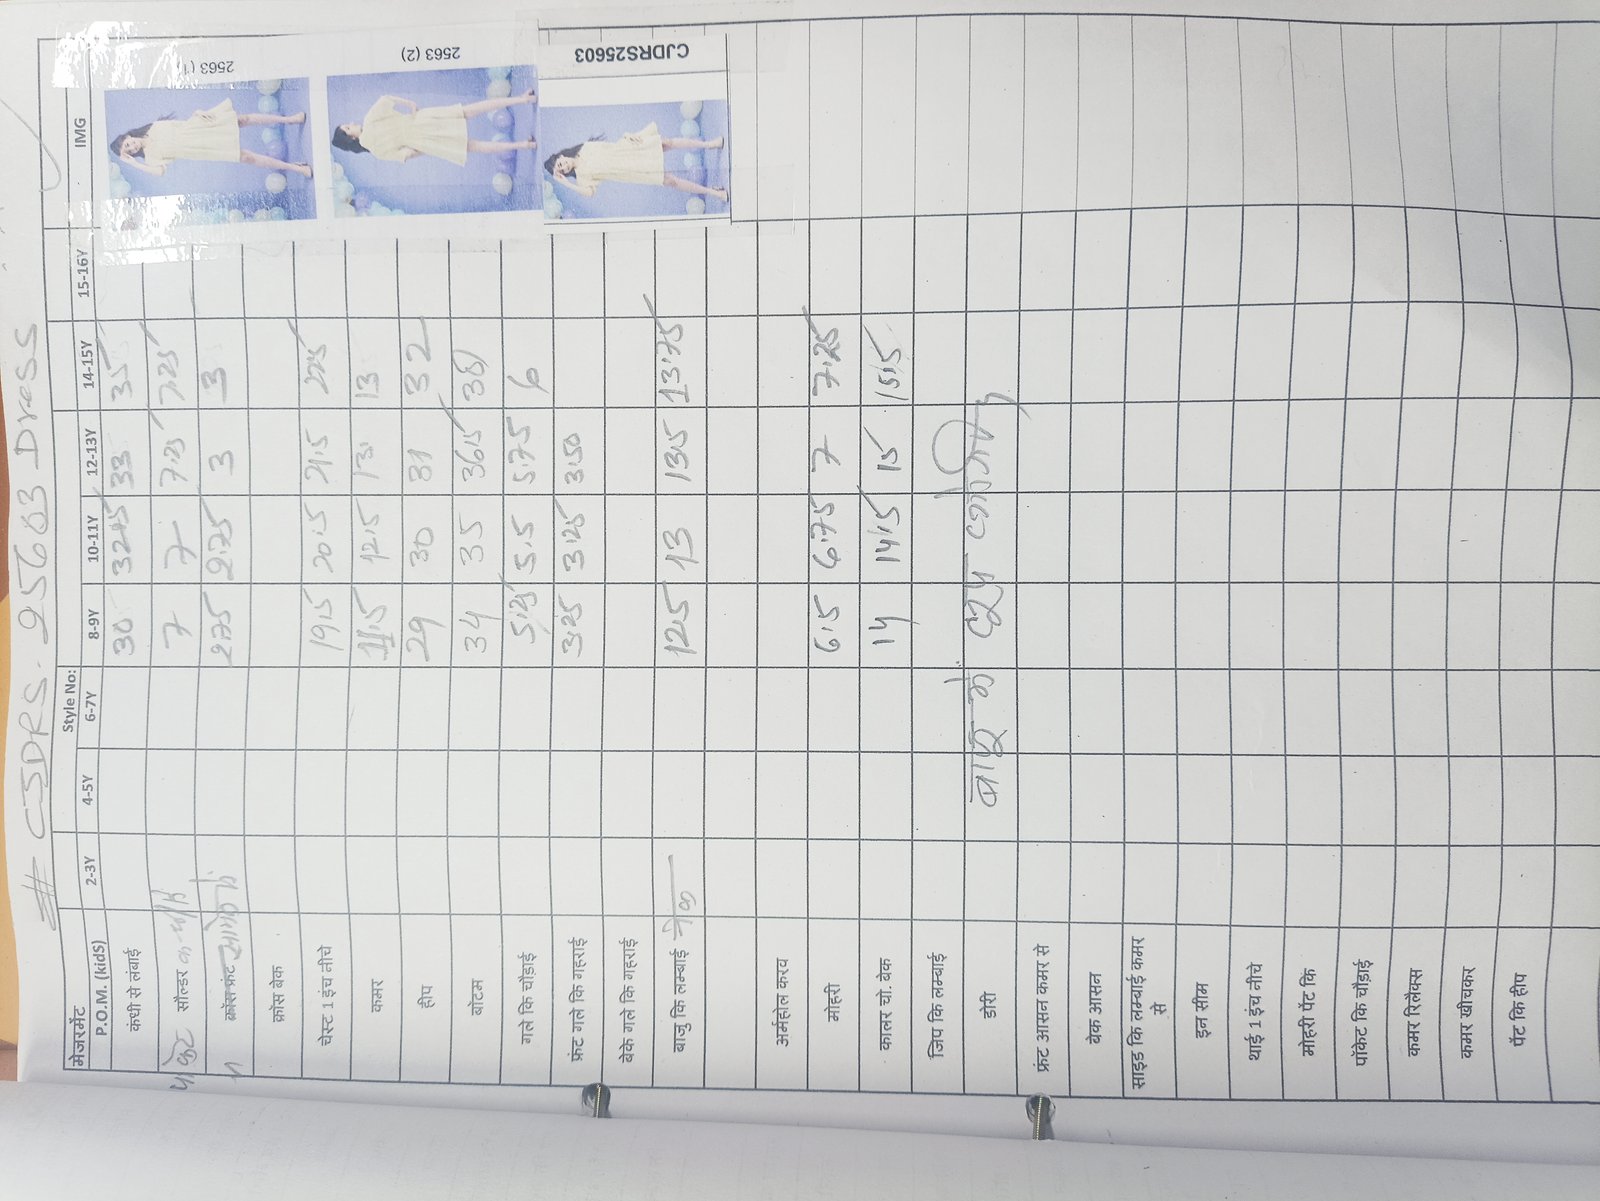 # CJDRS. 25603 Dress
मेजरमेंट Style No: IMG
P.O.M. (kidS) 2-3Y 4-5Y 6-7Y 8-9Y 10-11Y 12-13Y 14-15Y 15-16Y
कंधी से लंबाई 30 32.75 33 35
पाकेट सौल्डर 7 7 7.25 7.25
क्रॉस फ्रंट 2.75 2.75 3 3
क्रॉस बेक
चेस्ट 1 इंच नीचे 19.5 20.5 21.5 22.5
कमर 11.5 12.5 13 13
हीप 29 30 31 32
बॉटम 34 35 36.5 38
गले कि चौड़ाई 5.25 5.5 5.75 6
फ्रंट गले कि गहराई 3.25 3.25 3.50
बेक गले कि गहराई
बाजु कि लम्बाई नेक 12.5 13 13.5 13.75
अर्महोल करव
मोहरी 6.5 6.75 7 7.25
कालर चो. बेक 14 14.5 15 15.5
जिप कि लम्बाई
डोरी बाजु के
फ्रंट आसन कमर से
बेक आसन
साइड कि लम्बाई कमर से
इन सीम
थाई 1 इंच नीचे
मोहरी पेंट कि
पॉकेट कि चौड़ाई
कमर रिलैक्स
कमर खीचकर
पेंट कि हीप
2563 (1)
2563 (2)
CJDRS25603